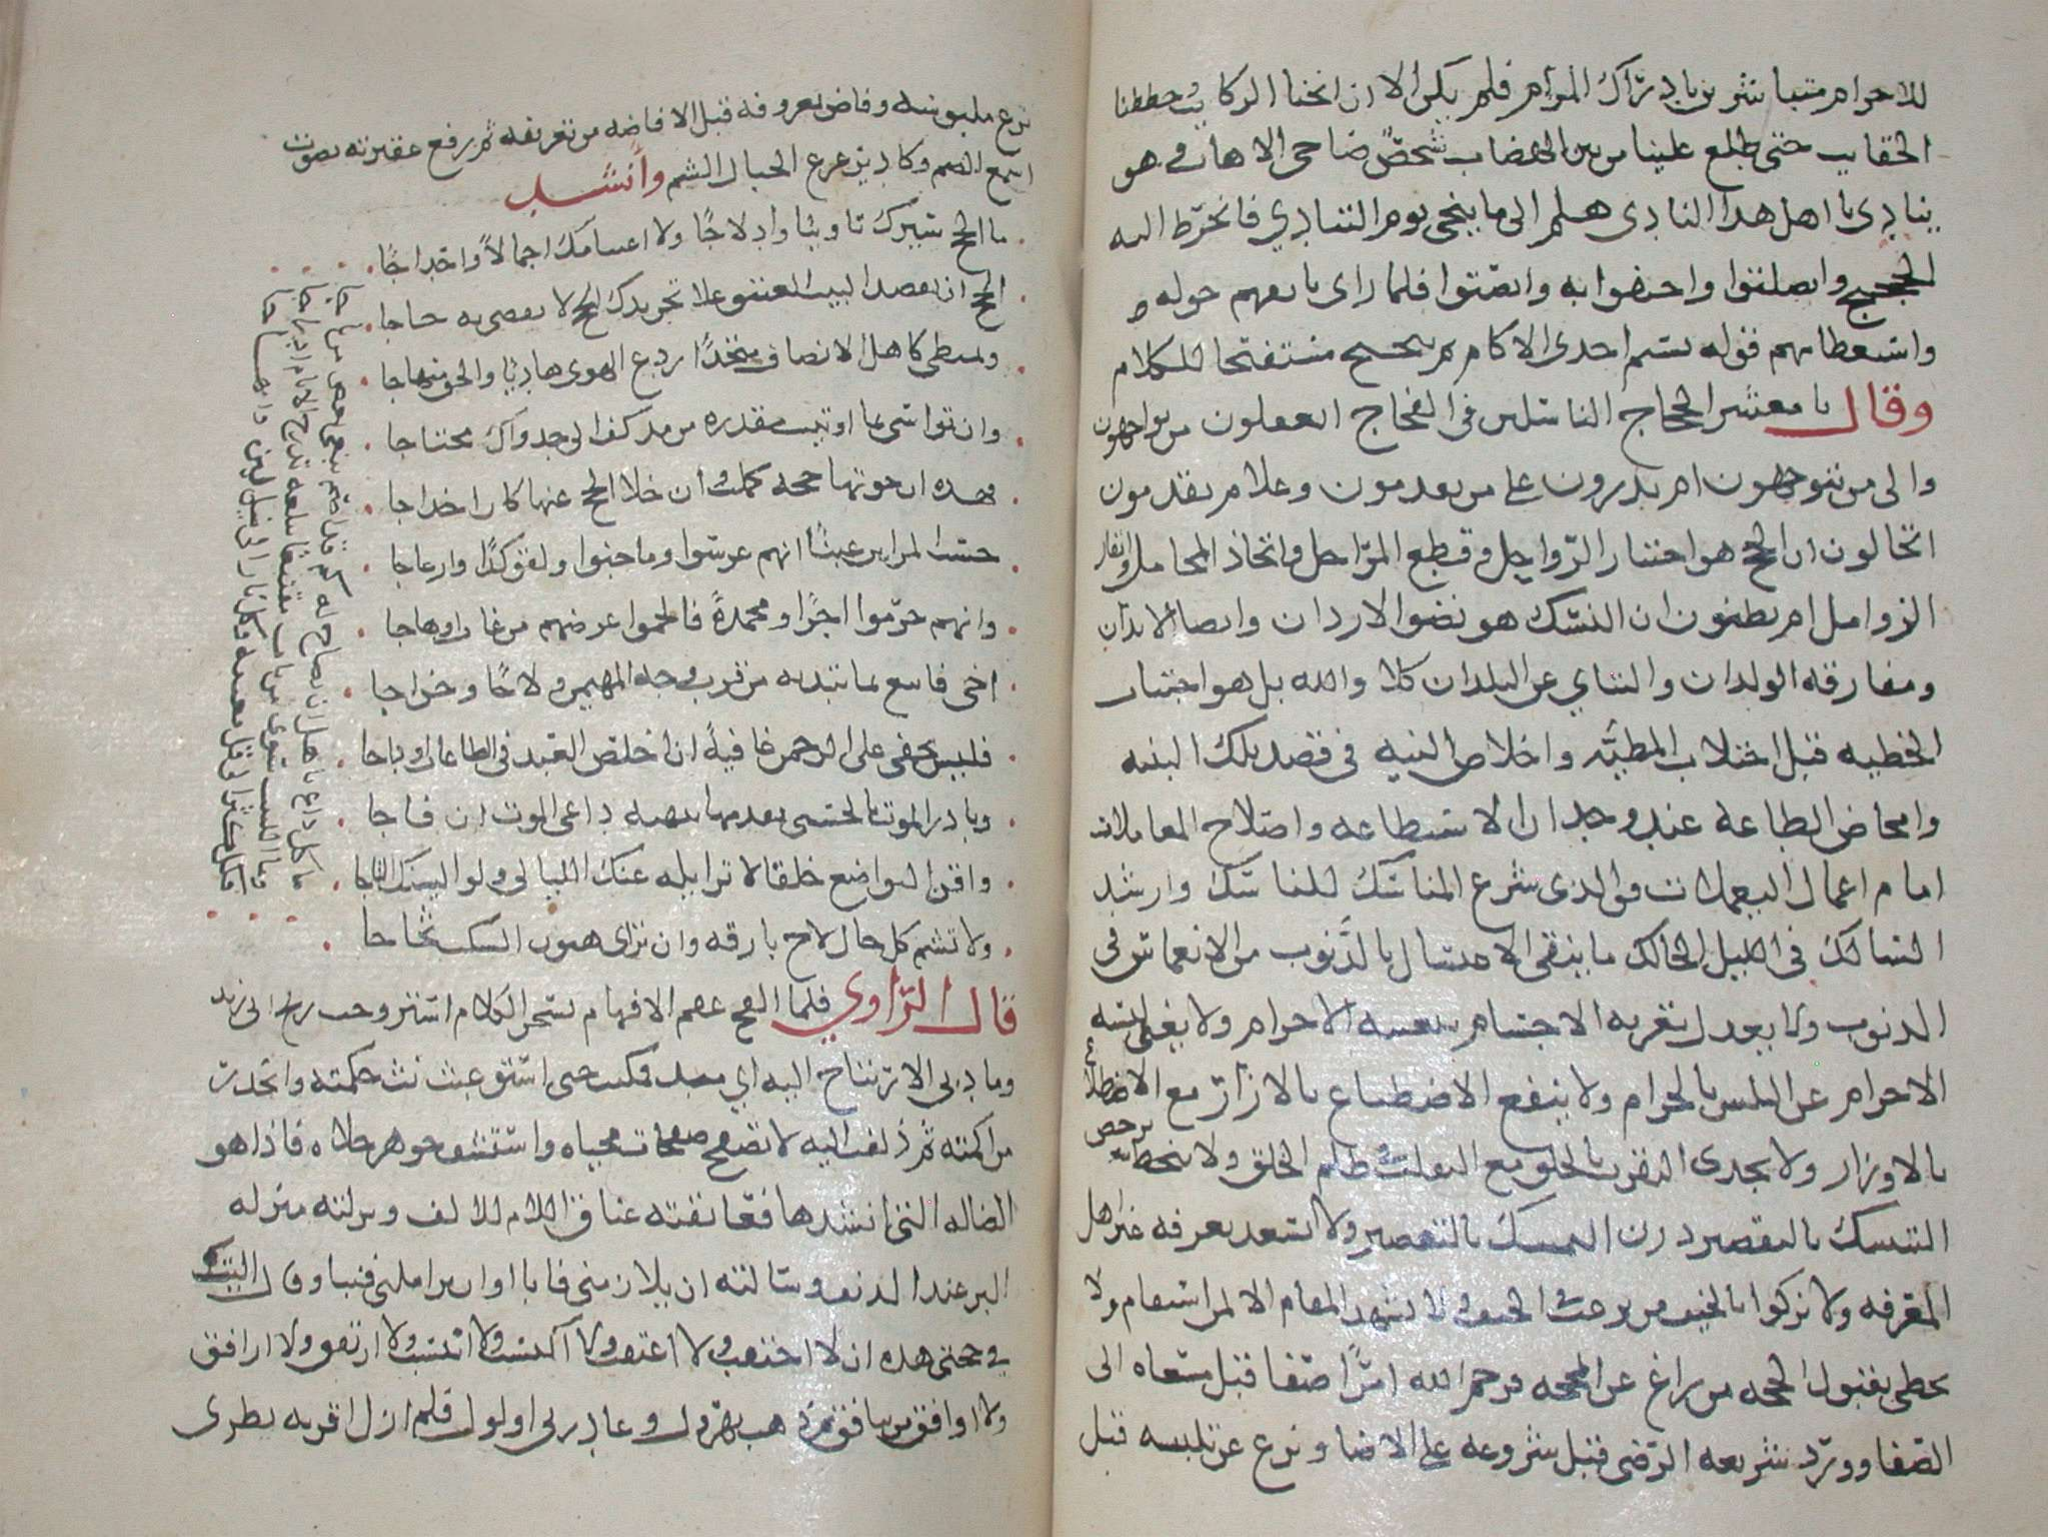 للاحرام متباشرين بادراك المرام فلم يكن الا ان انخنا الركايب وحططنا
الحقايب حتى طلع علينا من بين الهضاب شخص ضاحي الاهاب وهو
ينادي يا اهل هدا النادي هلم الى ما ينجي يوم التنادي فانخرط اليه
الحجيج وانصلتوا واحتفوا به وانصتوا فلما راى تاثفهم حوله
واستعطامهم قوله تسنم احدى الاكام ثم تنحنح مستفتحا للكلام
وقال يا معشر الحجاج الناسلين في الفجاج اتعقلون من تواجهون
والى من تتوجهون ام تدرون على من تقدمون وعلام تقدمون
اتخالون ان الحج هو اختيار الرواحل وقطع المراحل واتخاذ المحامل وايقار
الزوامل ام تظنون ان النسك هو نضو الاردان وانضا الابدان
ومفارقه الولدان والتناي عن البلدان كلا والله بل هو اجتناب
الخطيه قبل اجتلاب المطيه واخلاص النيه في قصد تلك البنيه
وامحاض الطاعة عند وجدان الاستطاعه واصلاح المعاملات
امام اعمال اليعملات فوالدي شرع المناسك للناسك وارشد
السالك في الليل الحالك ما ينقي الاغتسال بالذنوب من الانغماس في
الدنوب ولا يعدل تعريه الاجسام بتعبيه الاجرام ولا يغني لبسه
الاحرام عن التلبس بالحرام ولا ينفع الاضطباع بالازار مع الاضطلاع
بالاوزار ولا يجدي التقرب بالحلق مع التقلب في ظلم الخلق ولا يرحض
التنسك بالتقصير درن التمسك بالتقصير ولا يسعد بعرفه غير اهل
المعرفه ولا يزكوا بالخيف من يرعب في الحيف ولا يشهد المقام الا لمن استقام ولا
يحظى بقبول الحجه من زاغ عن المحجه فرحم الله امرًا صفا قبل مسعاه الى
الصفا وورد شريعه الرضى قبل شروعه على الاضا ونزع عن تلبيسه قبل
نزع ملبوسه وفاض بمعروفه قبل الافاضه من تعريفه ثم رفع عقيرته بصوت
اسمع الصم وكاد يزعزع الجبال الشم وانشد
ما الحج سيرك تاويبا وادلاجًا ولا اعتيامك اجمالاً واحداجًا
الحج ان تقصد البيت العتيق على تجريدك الحج لا تقضي به حاجا
وتمتطي كاهل الانصاف متخدًا ردع الهوى هاديًا والحق منهاجا
وان تواسي بما اوتيت مقدره من مد كفا الى جدواك محتاجا
فهده ان حوتها حجه كملت وان خلا الحج عنها كان اخداجا
حسب المراين غبنًا انهم غرسوا وما جنوا ولقوا كدًا وازعاجا
وانهم حرموا اجرًا ومحمدةً والحموا عرضهم من عاب اوهاجا
اخي فابع بما تبديه من قرب وجه المهيمن ولاجًا وخراجا
فليس تخفى على الرحمن خافيةً ان اخلص العبد في الطاعات او داجا
وبادر الموت بالحسنى تقدمها فما ينهنه داعي الموت ان فاجا
واقن التواضع خلقا لا تزايله عنك الليالي ولو البسنك التاجا
ولا تشم كل خال لاح بارقه وان تراى هتون السكب ثجاجا
ما كل داع باهل ان يصاخ له كم قد اصم بنعي بعض من ناجى
وما اللبيب سوى من بات مقتنعا ببلغه تدرج الايام ادراجا
فكل كثر الى قل معبته وكل ناز الى لين وان هاجا
قال الراوي فلما القح عقم الافهام بسحر الكلام استنشيت ريح ابي زيد
وماد بي الارتياح اليه اي ميد فمكثت حتى استوعب نث حكمته وانحدر
من اكمته ثم دلفت اليه لاتصفح صفحات محياه واستشف جوهر حلاه فاذا هو
الضاله التي انشدها فعانقته عناق اللام للالف ونزلته منزله
البر عند الدنف وسالته ان يلازمني فابا او ان يزاملني فنبا وقال اليت
في حجتي هده ان لا احتقب ولا اعتقب ولا اكتسب ولا انتسب ولا ارتفق ولا ارافق
ولا اوافق من ينافق ثم ذهب يهرول وغادرني اولول فلم ازل اقريه نظري